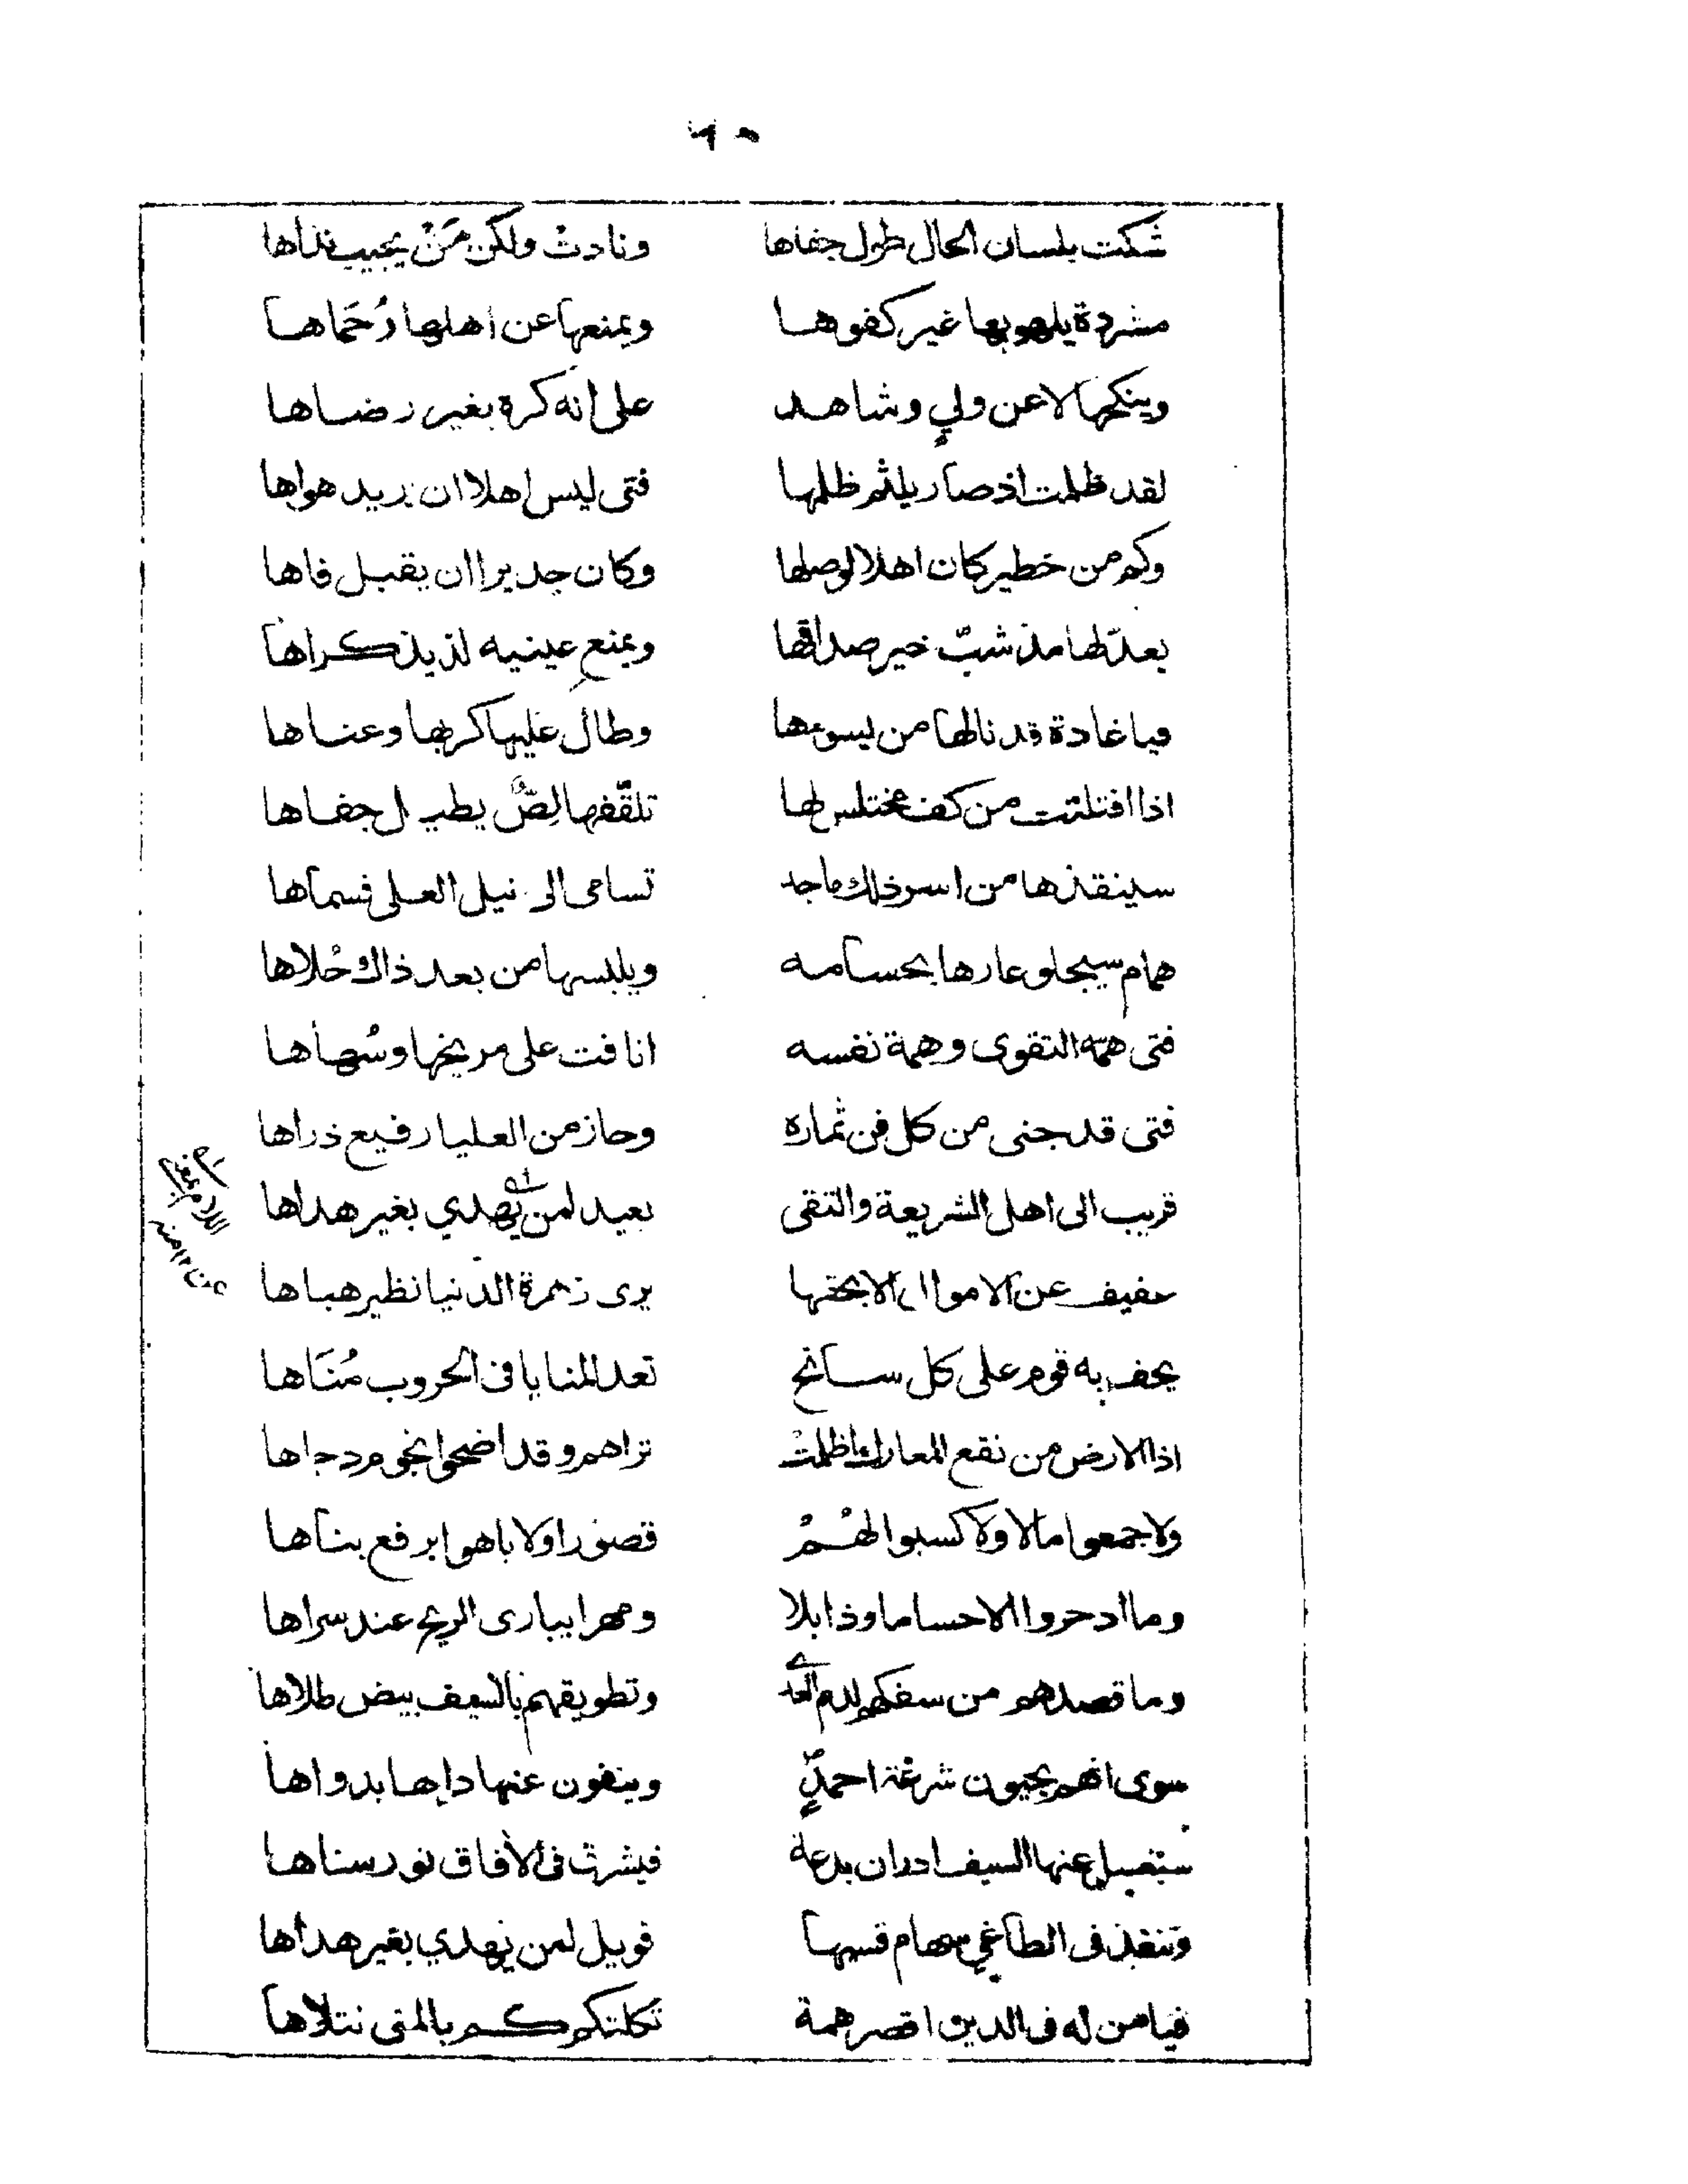 ٦٠
شكت بلسان الحال طول جفاها ونادتْ ولكن مَنْ يجيب نداها
مشردة يلهو بها غير كفوها ويمنعها عن اهلها رُحَماها
وينكحها لا عن وليٍ وشاهد على انه كرة بغير رضاها
لقد ظلمت اذ صار يلثم ظلمها فتى ليس اهلا ان يريد هواها
وكم من خطير كان اهلا لوصلها وكان جديرا ان يقبل فاها
يعدّ لها مذ شبّ خير صداقها ويمنع عينيه لذيذ كراها
فيا غادة قد نالها من يسوءها وطال عليها كربها وعناها
اذا افتلتت من كف مختلس لها تلقّفها لِصٌّ يطيل جفاها
سينقذها من اسر ذلك ماجد تسامى الى نيل العلى فسماها
همام سيجلو عارها بحسامه ويلبسها من بعد ذاك حُلاها
فتى همّه التقوى وهمة نفسه انافت على مريخها وسُهاها
فتى قد جنى من كل فن ثماره وحاز من العليا رفيع ذراها
قريب الى اهل الشريعة والتقى بعيد لمن يهدي بغير هداها
اللام بمعنى
عن ١٢ منه
عفيف عن الاموال الا بحقها يرى زهرة الدنيا نظير هباها
يحف به قوم على كل سابح تعد المنايا فى الحروب مُنَاها
اذا الارض من نقع المعارك اظلمتْ تراهم وقد اضحوا نجوم دجاها
ولا جمعوا مالا ولا كسبوا لهُمْ قصورا ولا باهوا برفع بناها
وما ادخروا الا حساما وذابلا ومهرا يبارى الريح عند سراها
وما قصدهم من سفكهم لدم العدى وتطويقهم بالسيف بيض طلاها
سوى انهم يحيون شرعة احمدٍ وينفون عنها داءها بدواها
ستغسل عنها السيف ادران بدعة فيشرق فى الآفاق نور سناها
وتنفذ فى الطاغي سهام قسيها فويل لمن يهدي بغير هداها
فيا من له فى الدين اقصر همة ثكلتكم كم بالمنى نتلاها